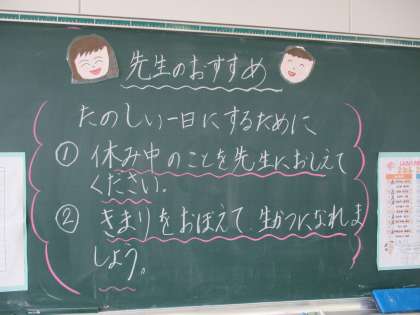 先生のおすすめ
たのしい一日にするために
① 休み中のことを先生におしえて
ください。
② きまりをおぼえて、生かつになれま
しょう。